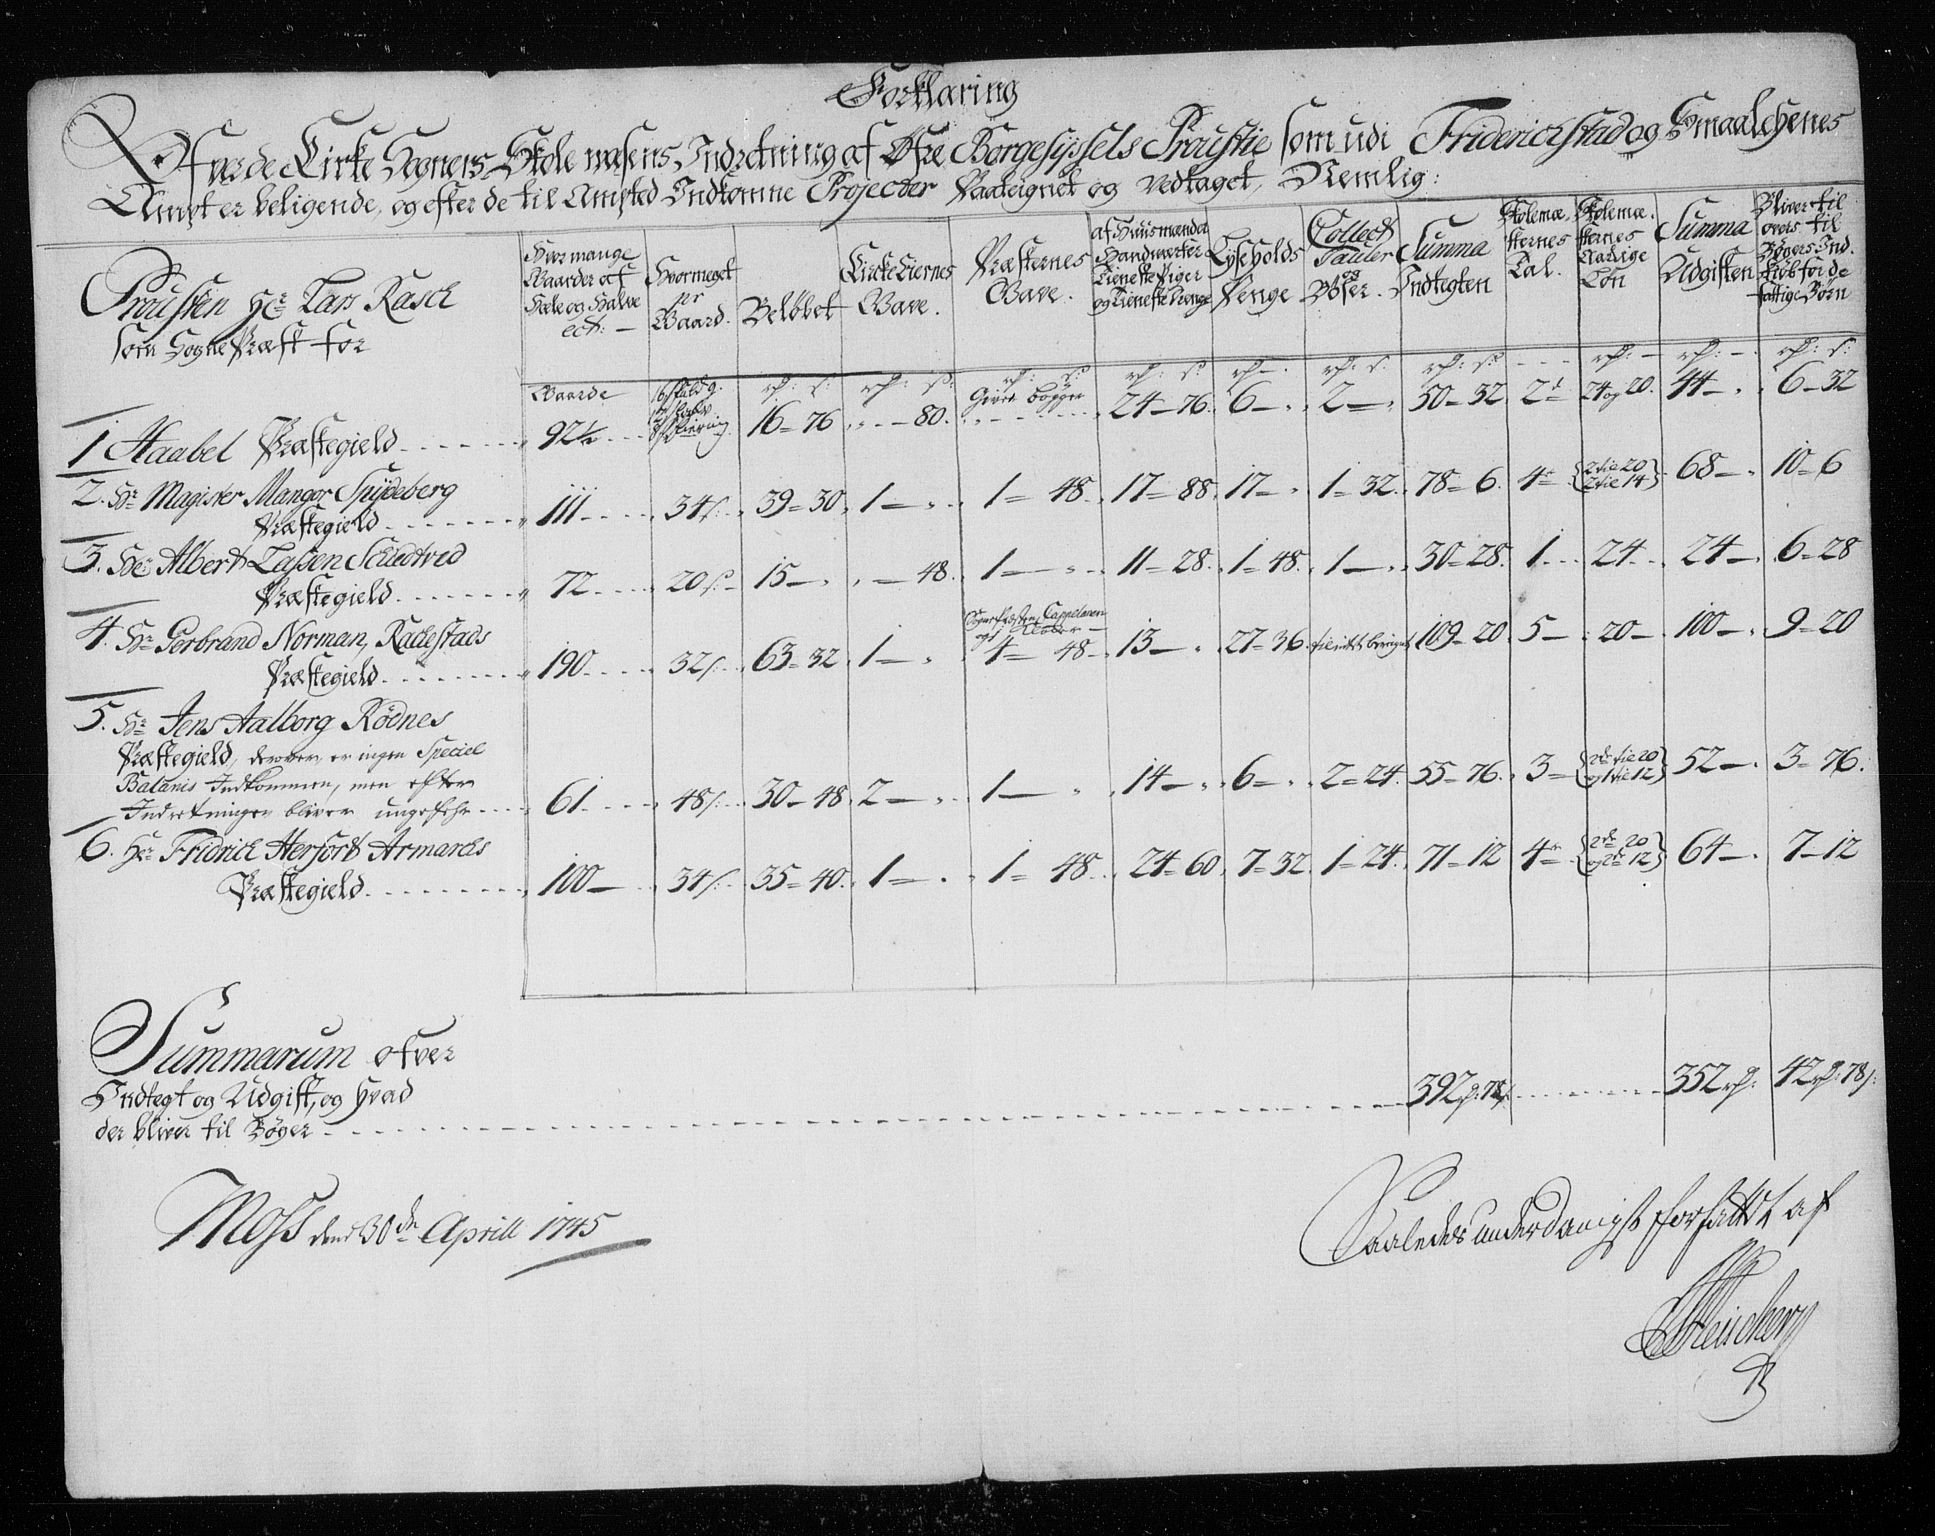 Forklaring
Ofver de Kirke Sogners Skole væsens Indretning af Øfre Borgesyssels Proustie som udi Friderichstad og Smaalehnenes
Ampt er beligende, og efter de til Ampted Indkomne Projecter Paateignet og Vedtaget, Nemlig:
Prousten Hr Lars Rasch
som Sogne Præst for
Hvor mange
Gaarder af
Heele og Halve
ect: —
Hvormeget
pr
Gaard.
Beløbet
Kirke Eiernes
Gave.
Præsternes
Gave.
af Huusmænd
Handverker
Tieneste Piger
og Tieneste Drenge
Lyseholds
Penge
Collect
Tauler
og
Bøser.
Summa
Indtegten
Skolemæ.
sternes
Tal.
Skolemæ.
sternes
Aarlige
Løn
Summa
Udgiften
Bliver til
overs til
Bøgers Ind.
kiøb for de
fattige Børn
1 Haabel Præstegield Gaarde 92½ 16 76 80. Giver bøgger 24 76. 6 2 50 32 2de 24 og 20. 44 6 32
2. Hr Magister Mangor Spydeberg
Præstegield 111 34 s. 39 30 1 1 48. 17 88. 17 1 32. 78 6. 4re {2 tie 20 2 tie 14} 68 10 6
3. Hr Albert Lassen Schiedtved
Præstegield 72 20 s. 15 48. 1 11 28. 1 48. 1 30 28. 1 24. 24 6 28
4. Hr Gerbrand Norman, Rachestads
Præstegield 190 32 s. 63 32 1 1 48 13 27 36. 109 20 5 20 100 9 20
5. Hr Jens Aalborg Rødnes
Præstegield, derover er ingen Speciel
Balanis Indkommen, men efter
Indretningen bliver ungefehr 61 48 s. 30 48. 2 1 14 6 2 24. 55 76. 3 {2de tie 20 og 1 tie 12} 52 3 76.
6. Hr Fridrich Herfort Armarchs
Præstegield 100 34 s. 35 40. 1 1 48. 24 60. 7 32. 1 24. 71 12 4re {2de 20 og 2de 12} 64 7 12
Summarum ofver
Indtegt og Udgift, og Hvad
der bliver til Bøger 392 78 352 rd 42 rd: 78 s:
Moss den 30de Aprill 1745
Saaledes underdanigst forfattet af